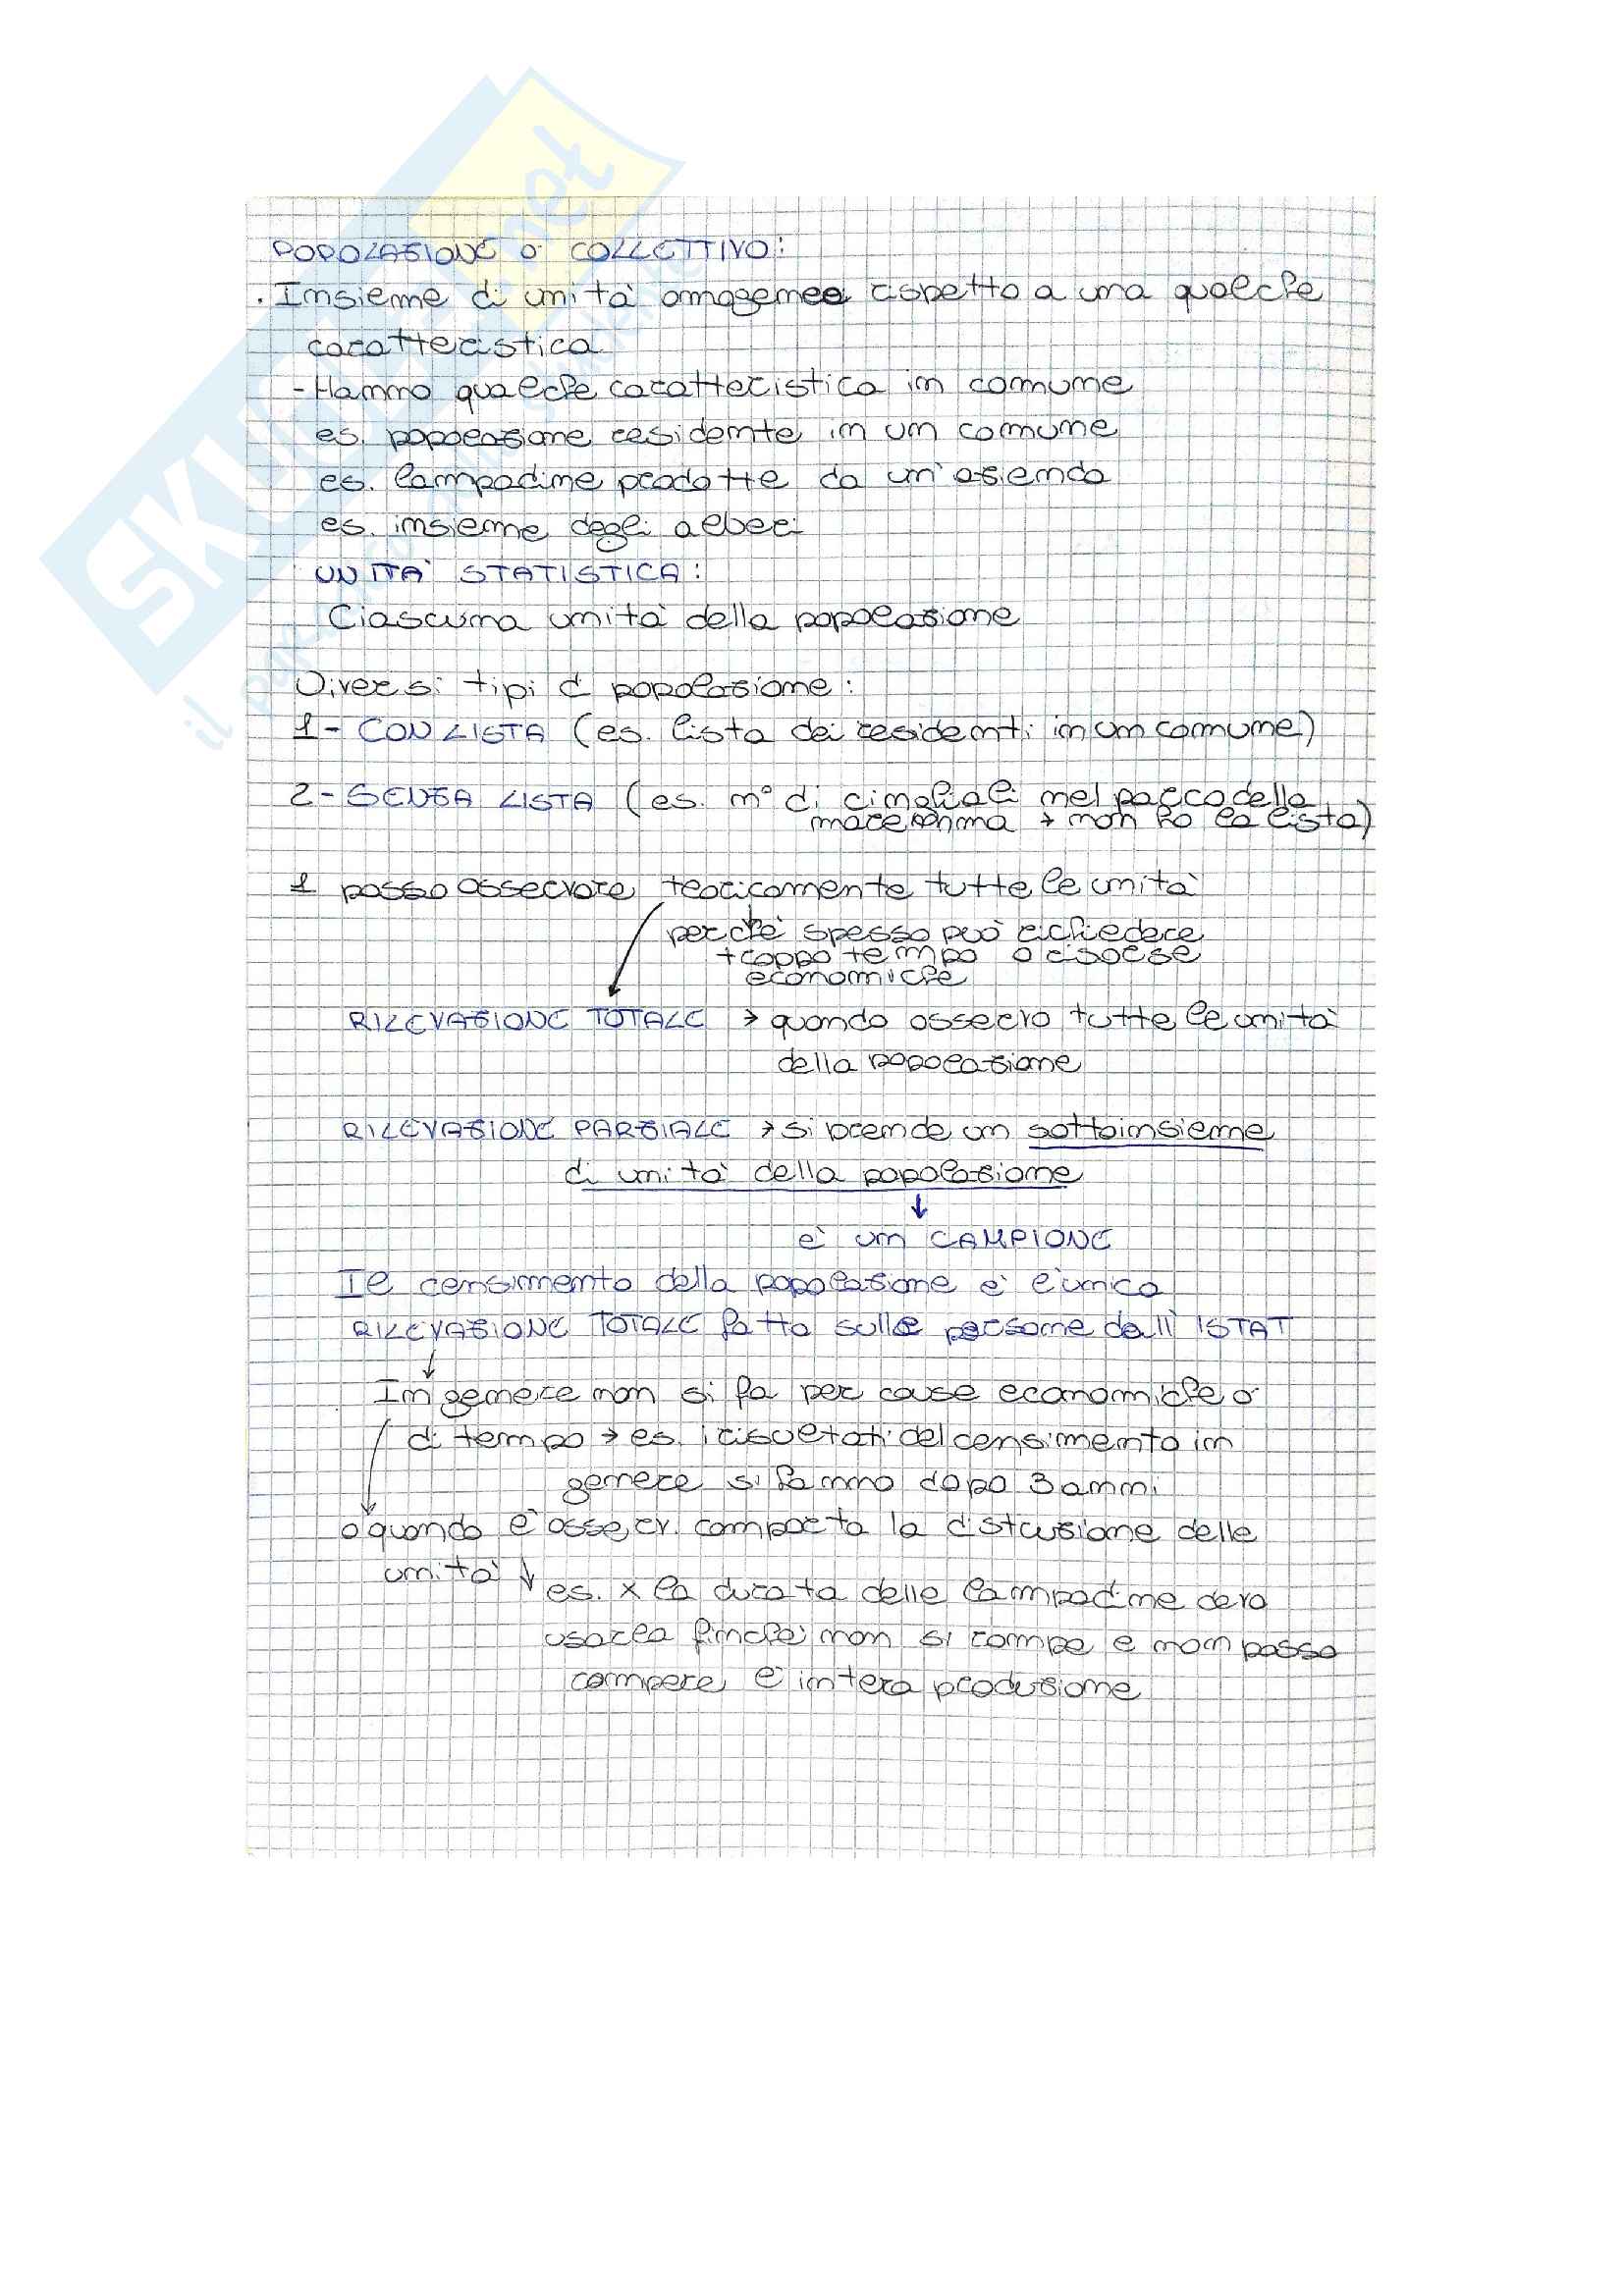 POPOLAZIONE O COLLETTIVO:
. Insieme di unità omogenee rispetto a una qualche
caratteristica
- Hanno qualche caratteristica in comune
es. popolazione residente in un comune
es. lampadine prodotte da un'azienda
es. insieme degli alberi
UNITA' STATISTICA:
Ciascuna unità della popolazione
Diversi tipi d popolazione:
1- CON LISTA (es. lista dei residenti in un comune)
2- SENZA LISTA (es. n° di cinghiali nel parco della
maremma → non ho la lista)
1 posso osservare teoricamente tutte le unità
perchè spesso può richiedere
troppo tempo o risorse
economiche
RILEVAZIONE TOTALE → quando osservo tutte le unità
della popolazione
RILEVAZIONE PARZIALE → si prende un sottoinsieme
di unità della popolazione
↓
è un CAMPIONE
Il censimento della popolazione è l'unica
RILEVAZIONE TOTALE fatta sulle persone dall'ISTAT
↓
In genere non si fa per cause economiche o
di tempo → es. i risultati del censimento in
genere si fanno dopo 3 anni
o quando l'osserv. comporta la distruzione delle
unità ↓
es. x la durata delle lampadine devo
usarla finchè non si rompe e non posso
rompere l'intera produzione
SKUOLA.net